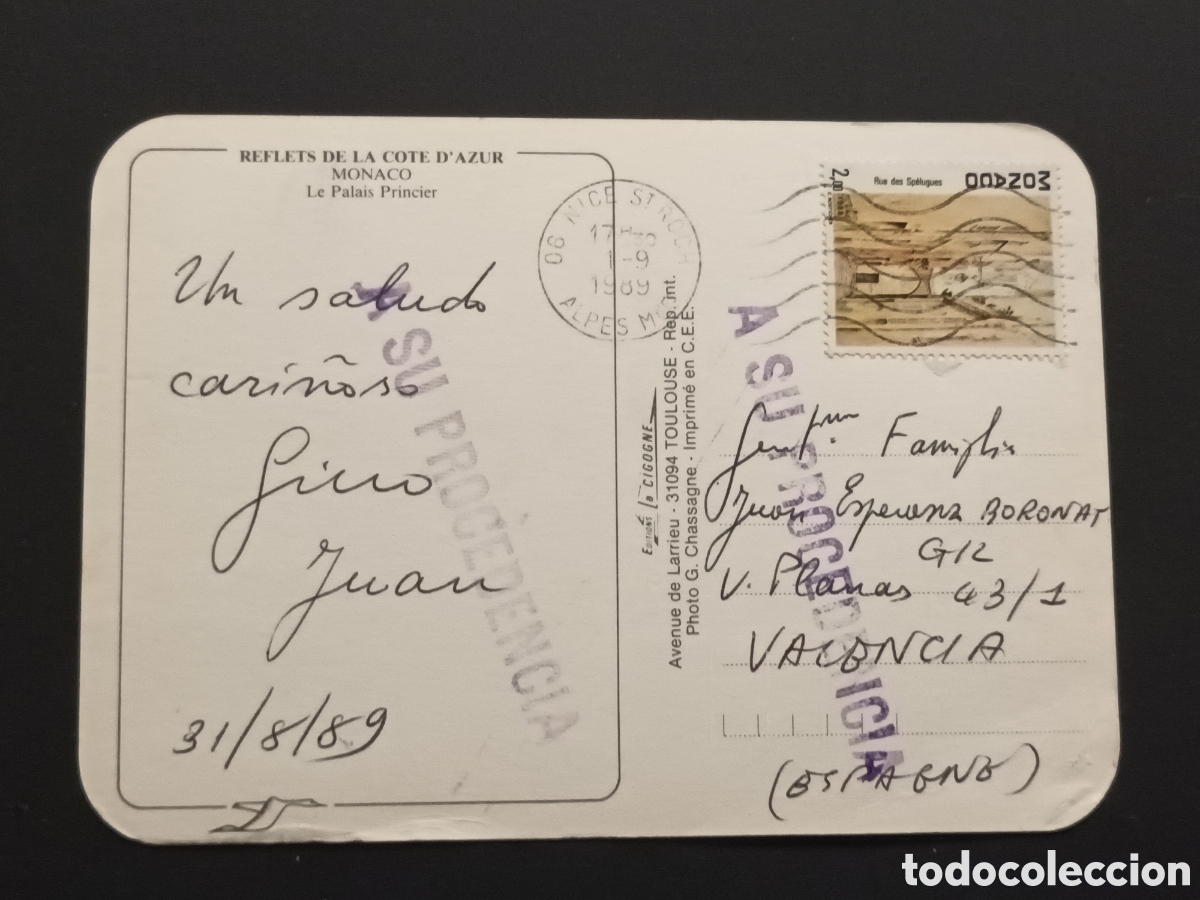 REFLETS DE LA COTE D'AZUR
MONACO
Le Palais Princier
Un saludo
cariñoso
Gino
Juan
31/8/89
A SU PROCEDENCIA
06 NICE ST ROCH
17H
1-9
1989
ALPES MMES
EDITIONS la CIGOGNE
Avenue de Larrieu - 31094 TOULOUSE - Rep. int.
Photo G. Chassagne - Imprimé en C.E.E.
MONACO
Rue des Spélugues
2,00
A SU PROCEDENCIA
Famiglia
Juan Esperanza BORONAT
V. Planas 43/1
VALENCIA
(ESPAGNE)
todocoleccion